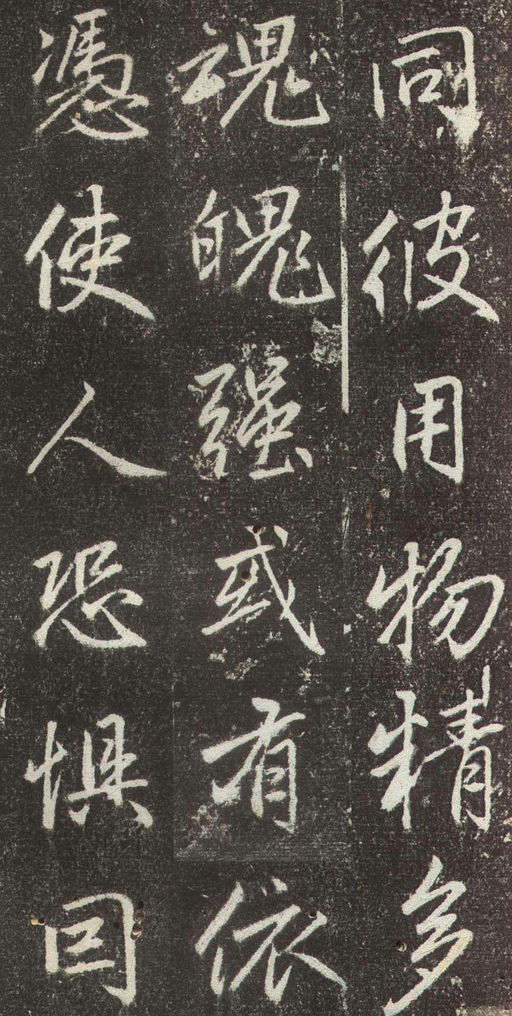 同彼用物精多
魂魄强或有依
憑使人恐懼囙